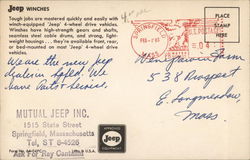 Jeep WINCHES
Tough jobs are mastered quickly and easily with
winch-equipped 'Jeep' 4-wheel drive vehicles.
Winches have high-strength gears and shafts,
seamless steel cable drums, and strong, light-
weight housings . . . they're available front, rear,
or bed-mounted on most 'Jeep' 4-wheel drive
vehicles.
We are the new Jeep
We have Parts & service.
MUTUAL JEEP INC.
1515 State Street
Springfield, Massachusetts
Tel, ST 5-4526
Ask For Ray
APPROVED
EQUIPMENT
Litho. in U.S.A.
SPRINGFIELD
FEB-7'66
U.S. POSTAGE
PLACE
STAMP
HERE
538 Prospect
E. Longmeadow
Mass.